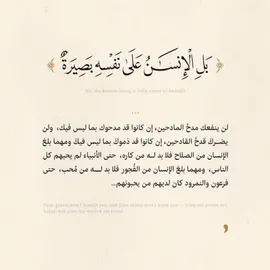 ﴿ بَلِ الْإِنسَـٰنُ عَلَىٰ نَفْسِهِ بَصِيرَةٌ ﴾
...
لن ينفعك مدحُ المادحين، إن كانوا قد مدحوك بما ليس فيك، ولن
يضرك قدحُ القادحين، إن كانوا قد ذموك بما ليس فيك ومهما بلغ
الإنسان من الصلاح فلا بد لـه من كاره، حتى الأنبياء لم يحبهم كل
الناس، ومهما بلغ الإنسان من الفُجور فلا بد له من مُحب، حتى
فرعون والنمرود كان لديهم من يحبونهم...